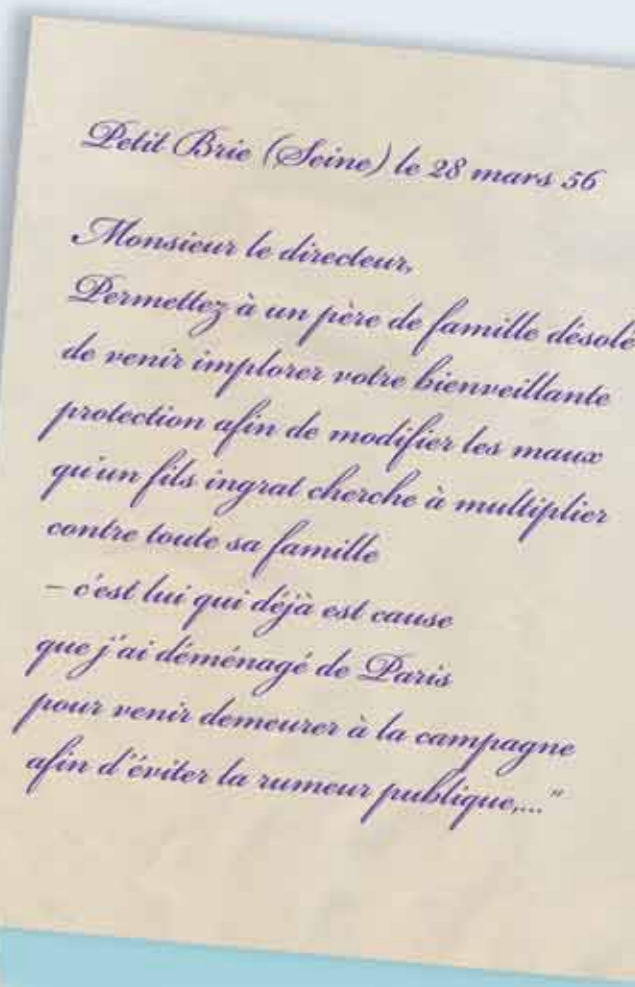 Petit Brie (Seine) le 28 mars 56
Monsieur le directeur,
Permettez à un père de famille désolé
de venir implorer votre bienveillante
protection afin de modifier les maux
qu'un fils ingrat cherche à multiplier
contre toute sa famille
– c'est lui qui déjà est cause
que j'ai déménagé de Paris
pour venir demeurer à la campagne
afin d'éviter la rumeur publique,..."